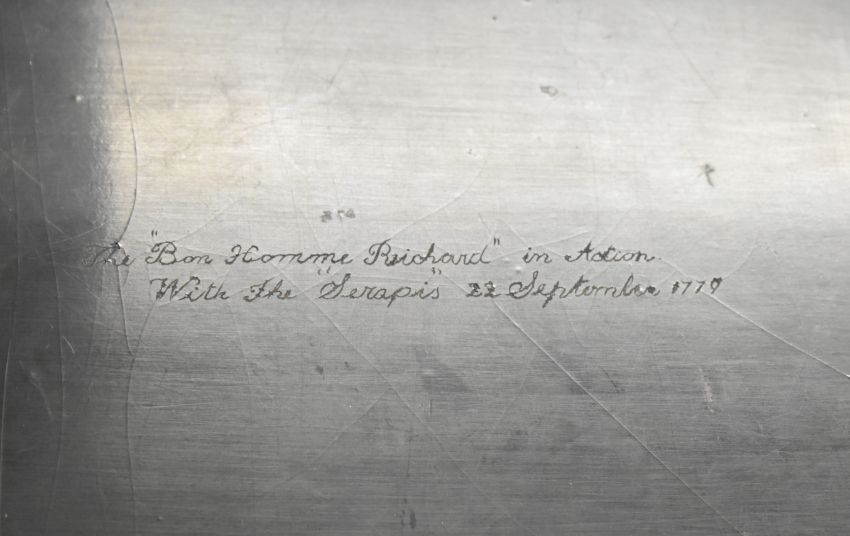 The "Bon Homme Richard" in Action
With the "Serapis" 22 September 1779